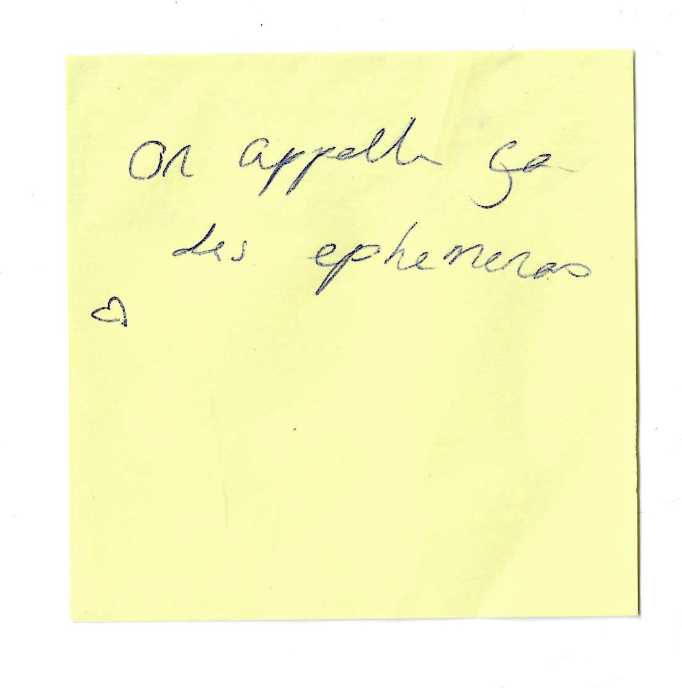 On appelle ça
des ephemeras
♡